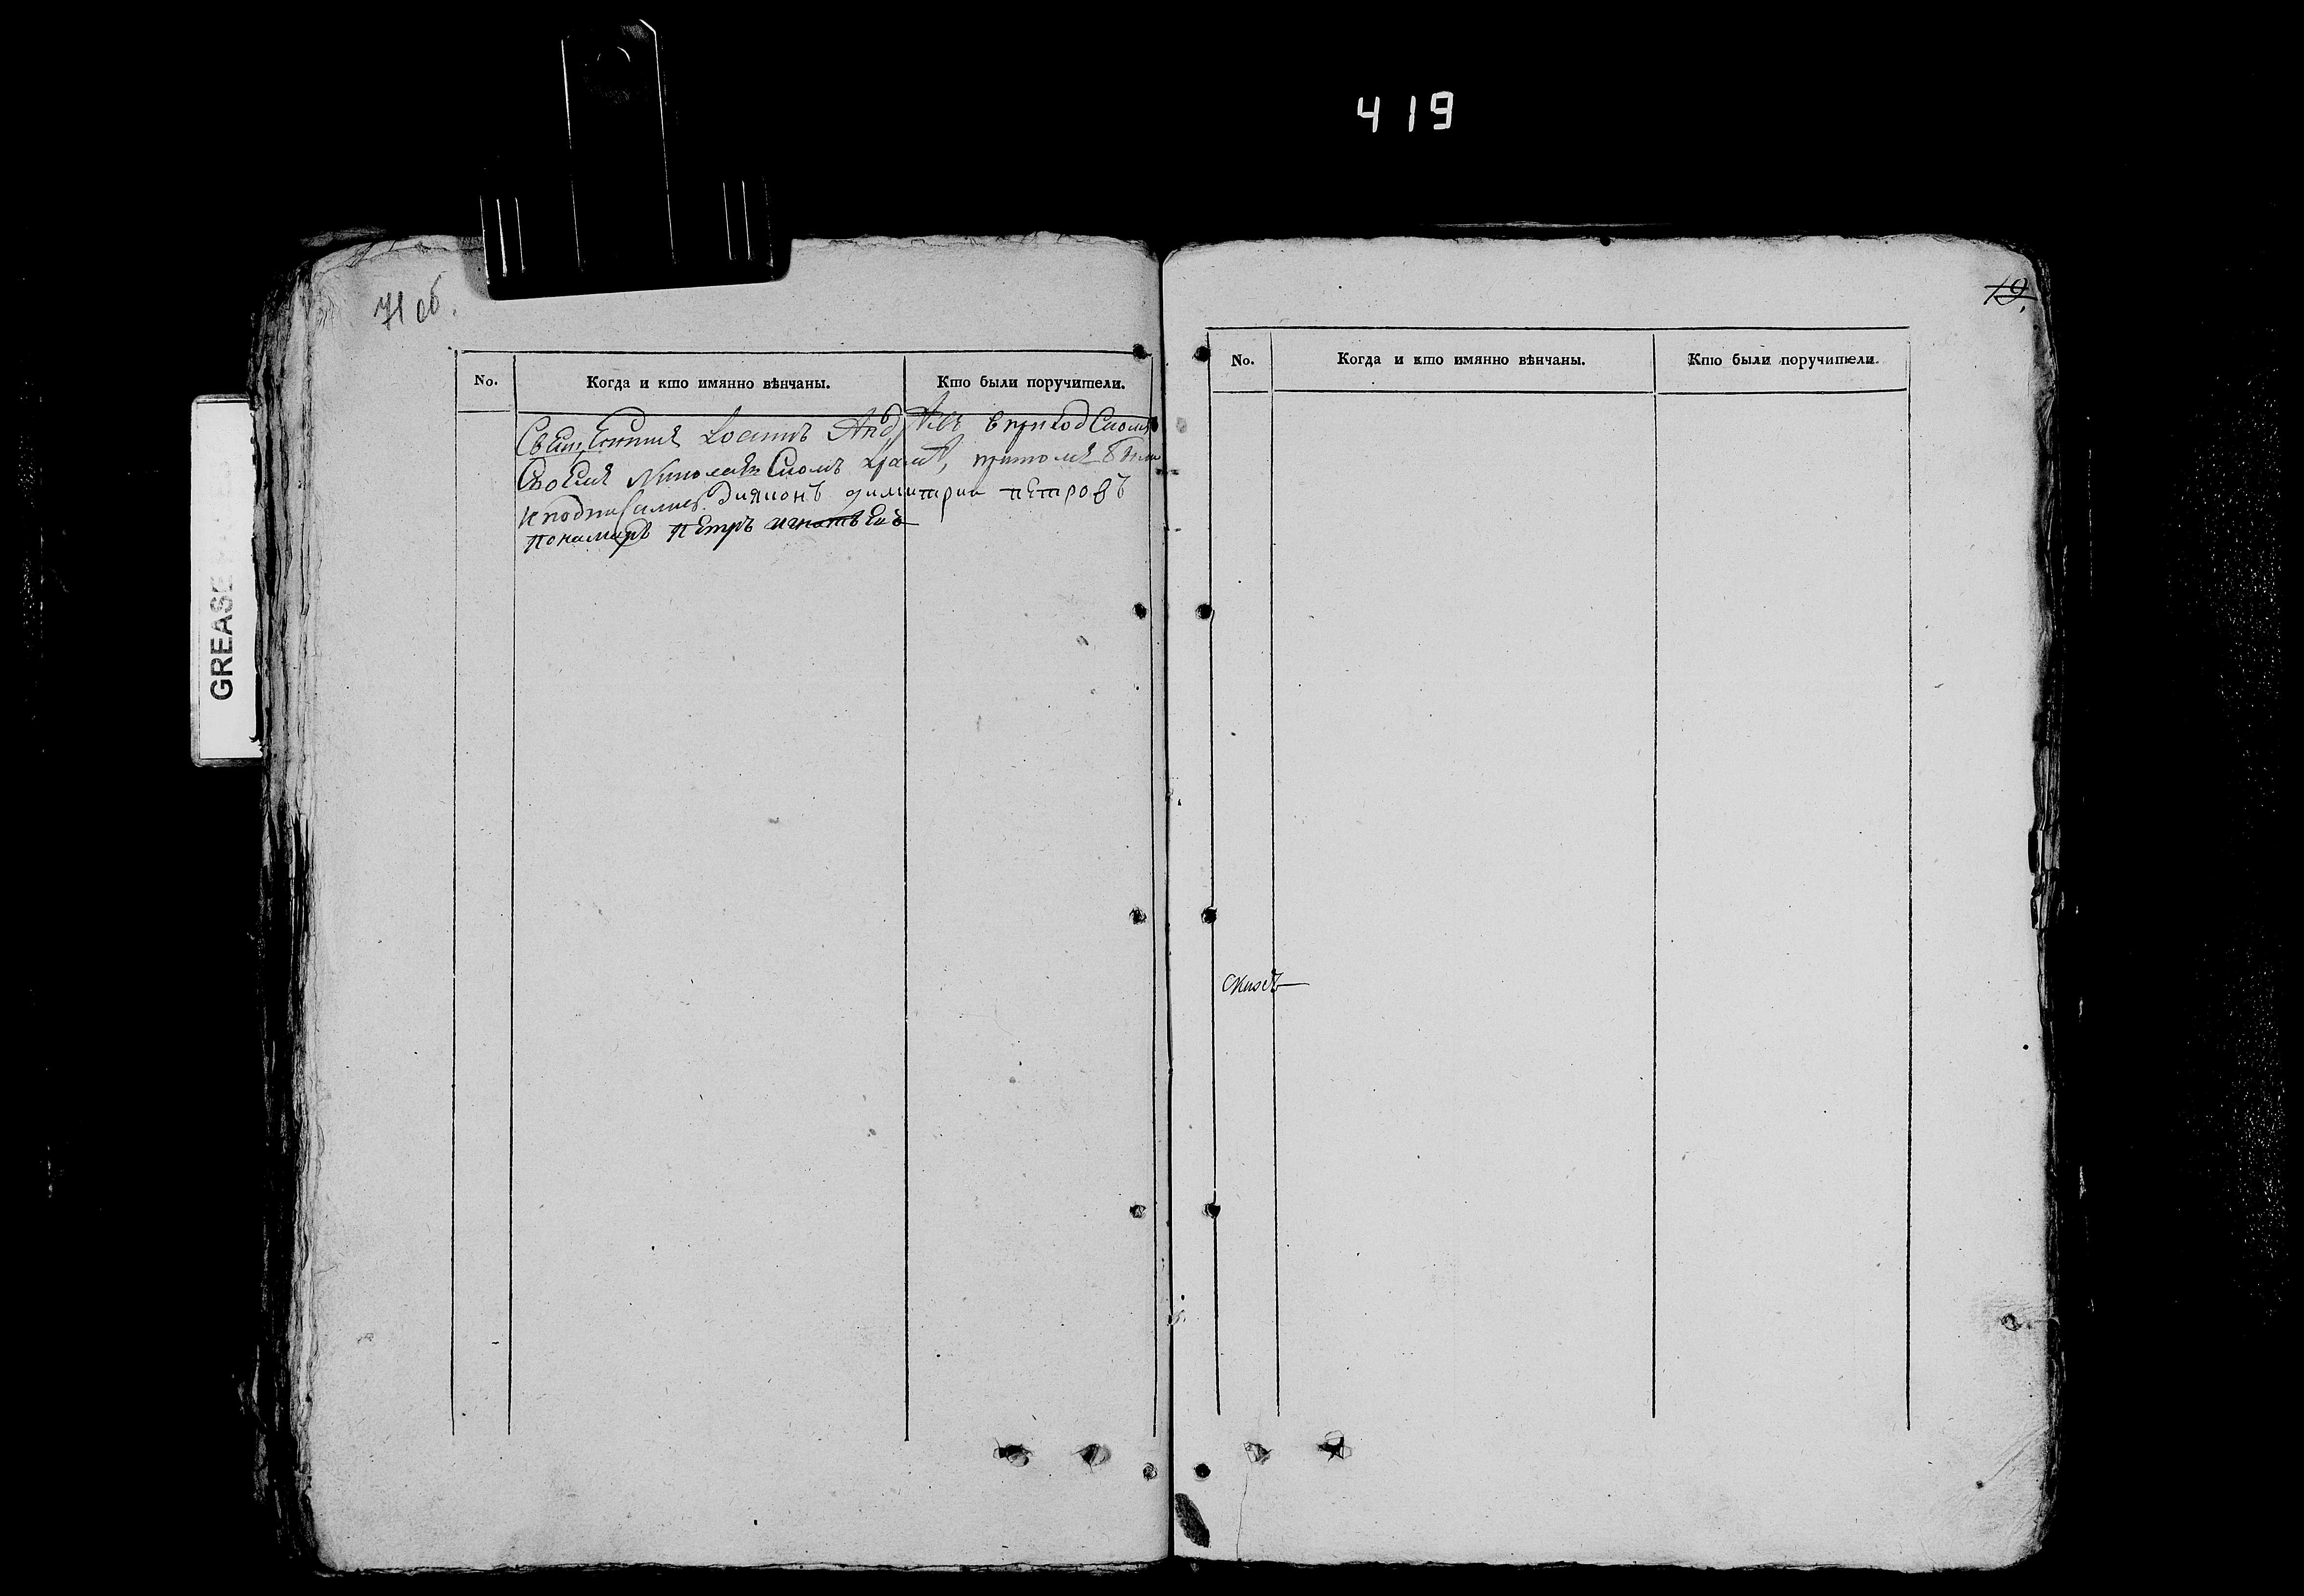 419
71 об.
No. Когда и кто имянно вѣнчаны. Кто были поручители.
Священникъ Iоаннъ Андрѣевъ в приход
Своемъ Николаевскомъ храмѣ, притомъ были
и подписались Дияконъ димитрии петровъ
понамарь петръ игнатьевъ
GREASE
19.
No. Когда и кто имянно вѣнчаны. Кто были поручители.